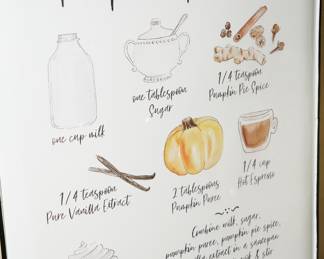 one cup milk
one tablespoon
Sugar
1/4 teaspoon
Pumpkin Pie Spice
1/4 teaspoon
Pure Vanilla Extract
2 tablespoons
Pumpkin Puree
1/4 cup
Hot Espresso
Combine milk, sugar,
pumpkin puree, pumpkin pie spice,
vanilla extract in a saucepan
& stir